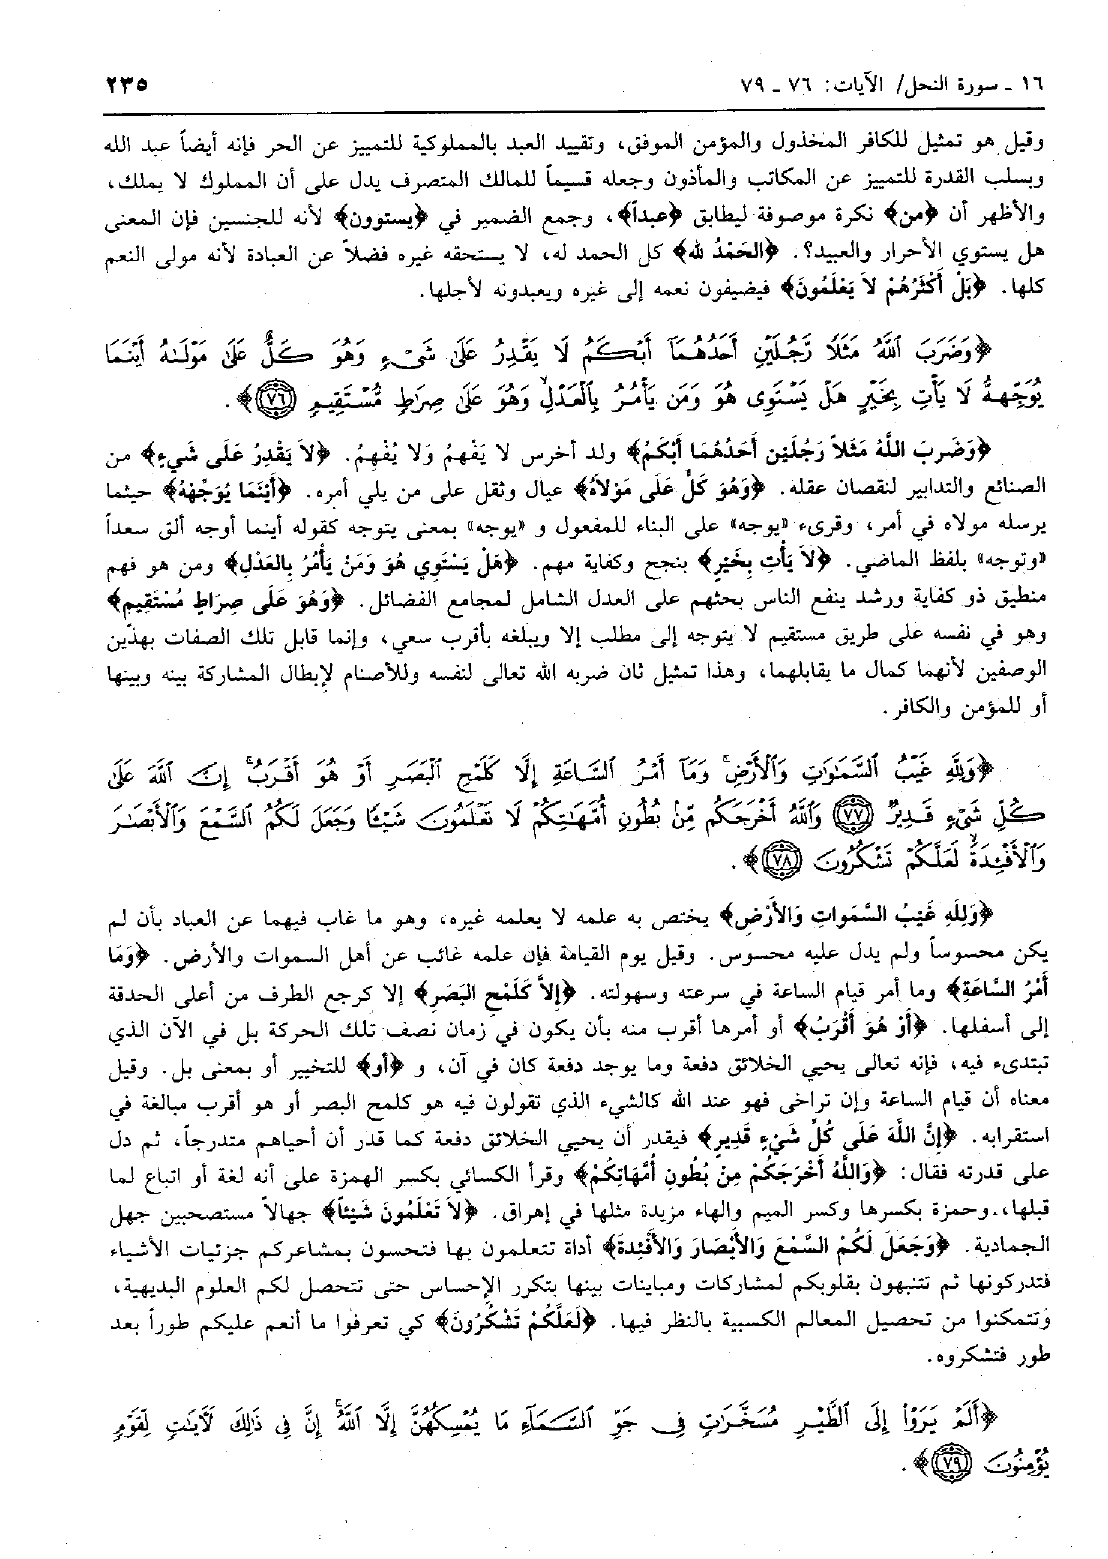 ١٦ ـ سورة النحل/ الآيات: ٧٦ ـ ٧٩
٢٣٥
وقيل هو تمثيل للكافر المخذول والمؤمن الموفق، وتقييد العبد بالمملوكية للتمييز عن الحر فإنه أيضاً عبد الله
وبسلب القدرة للتمييز عن المكاتب والمأذون وجعله قسيماً للمالك المتصرف يدل على أن المملوك لا يملك،
والأظهر أن ﴿من﴾ نكرة موصوفة ليطابق ﴿عبداً﴾، وجمع الضمير في ﴿يستوون﴾ لأنه للجنسين فإن المعنى
هل يستوي الأحرار والعبيد؟. ﴿الحَمْدُ لله﴾ كل الحمد له، لا يستحقه غيره فضلاً عن العبادة لأنه مولى النعم
كلها. ﴿بَلْ أَكْثَرُهُمْ لاَ يَعْلَمُونَ﴾ فيضيفون نعمه إلى غيره ويعبدونه لأجلها.
﴿وَضَرَبَ ٱللَّهُ مَثَلًا رَّجُلَيْنِ أَحَدُهُمَآ أَبْكَمُ لَا يَقْدِرُ عَلَىٰ شَىْءٍ وَهُوَ كَلٌّ عَلَىٰ مَوْلَىٰهُ أَيْنَمَا
يُوَجِّههُّ لَا يَأْتِ بِخَيْرٍ هَلْ يَسْتَوِى هُوَ وَمَن يَأْمُرُ بِٱلْعَدْلِ وَهُوَ عَلَىٰ صِرَٰطٍ مُّسْتَقِيمٍ ٧٦﴾.
﴿وَضَرَبَ اللَّهُ مَثَلاً رَجُلَيْنِ أَحَدُهُمَا أَبْكَمُ﴾ ولد أخرس لا يَفْهمُ وَلا يُفْهِمُ. ﴿لاَ يَقْدِرُ عَلَى شَيءٍ﴾ من
الصنائع والتدابير لنقصان عقله. ﴿وَهُوَ كَلٌّ عَلَى مَوْلاَهُ﴾ عيال وثقل على من يلي أمره. ﴿أَيْنَمَا يُوَجِّهْهُ﴾ حيثما
يرسله مولاه في أمر، وقرىء «يوجه» على البناء للمفعول و «يوجه» بمعنى يتوجه كقوله أينما أوجه ألق سعداً
«وتوجه» بلفظ الماضي. ﴿لاَ يَأْتِ بِخَيْرٍ﴾ بنجح وكفاية مهم. ﴿هَلْ يَسْتَوِي هُوَ وَمَنْ يَأْمُرُ بِالعَدْلِ﴾ ومن هو فهم
منطيق ذو كفاية ورشد ينفع الناس بحثهم على العدل الشامل لمجامع الفضائل. ﴿وَهُوَ عَلَى صِرَاطٍ مُسْتَقِيمٍ﴾
وهو في نفسه على طريق مستقيم لا يتوجه إلى مطلب إلا ويبلغه بأقرب سعي، وإنما قابل تلك الصفات بهذين
الوصفين لأنهما كمال ما يقابلهما، وهذا تمثيل ثان ضربه الله تعالى لنفسه وللأصنام لإبطال المشاركة بينه وبينها
أو للمؤمن والكافر.
﴿وَلِلَّهِ غَيْبُ ٱلسَّمَٰوَٰتِ وَٱلْأَرْضِ وَمَآ أَمْرُ ٱلسَّاعَةِ إِلَّا كَلَمْحِ ٱلْبَصَرِ أَوْ هُوَ أَقْرَبُ إِنَّ ٱللَّهَ عَلَىٰ
كُلِّ شَىْءٍ قَدِيرٌ ٧٧ وَٱللَّهُ أَخْرَجَكُم مِّنۢ بُطُونِ أُمَّهَٰتِكُمْ لَا تَعْلَمُونَ شَيْـًٔا وَجَعَلَ لَكُمُ ٱلسَّمْعَ وَٱلْأَبْصَٰرَ
وَٱلْأَفْـِٔدَةَ لَعَلَّكُمْ تَشْكُرُونَ ٧٨﴾.
﴿وَلِلهِ غَيْبُ السَّمَوَاتِ وَالأَرْضِ﴾ يختص به علمه لا يعلمه غيره، وهو ما غاب فيهما عن العباد بأن لم
يكن محسوساً ولم يدل عليه محسوس. وقيل يوم القيامة فإن علمه غائب عن أهل السموات والأرض. ﴿وَمَا
أَمْرُ السَّاعَةِ﴾ وما أمر قيام الساعة في سرعته وسهولته. ﴿إِلاَّ كَلَمْحِ البَصَرِ﴾ إلا كرجع الطرف من أعلى الحدقة
إلى أسفلها. ﴿أَوْ هُوَ أَقْرَبُ﴾ أو أمرها أقرب منه بأن يكون في زمان نصف تلك الحركة بل في الآن الذي
تبتدىء فيه، فإنه تعالى يحيي الخلائق دفعة وما يوجد دفعة كان في آن، و ﴿أو﴾ للتخيير أو بمعنى بل. وقيل
معناه أن قيام الساعة وإن تراخى فهو عند الله كالشيء الذي تقولون فيه هو كلمح البصر أو هو أقرب مبالغة في
استقرابه. ﴿إِنَّ اللَّهَ عَلَى كُلِّ شَيْءٍ قَدِيرٍ﴾ فيقدر أن يحيي الخلائق دفعة كما قدر أن أحياهم متدرجاً، ثم دل
على قدرته فقال: ﴿وَاللَّهُ أَخْرَجَكُمْ مِنْ بُطُونِ أُمَّهَاتِكُمْ﴾ وقرأ الكسائي بكسر الهمزة على أنه لغة أو اتباع لما
قبلها، وحمزة بكسرها وكسر الميم والهاء مزيدة مثلها في إهراق. ﴿لاَ تَعْلَمُونَ شَيْئاً﴾ جهالاً مستصحبين جهل
الجمادية. ﴿وَجَعَلَ لَكُمُ السَّمْعَ وَالأَبْصَارَ وَالأَفْئِدَةَ﴾ أداة تتعلمون بها فتحسون بمشاعركم جزئيات الأشياء
فتدركونها ثم تتنبهون بقلوبكم لمشاركات ومباينات بينها بتكرر الإحساس حتى تتحصل لكم العلوم البديهية،
وتتمكنوا من تحصيل المعالم الكسبية بالنظر فيها. ﴿لَعَلَّكُمْ تَشْكُرُونَ﴾ كي تعرفوا ما أنعم عليكم طوراً بعد
طور فتشكروه.
﴿أَلَمْ يَرَوْا إِلَى ٱلطَّيْرِ مُسَخَّرَٰتٍ فِى جَوِّ ٱلسَّمَآءِ مَا يُمْسِكُهُنَّ إِلَّا ٱللَّهُ إِنَّ فِى ذَٰلِكَ لَآيَٰتٍ لِّقَوْمٍ
يُؤْمِنُونَ ٧٩﴾.